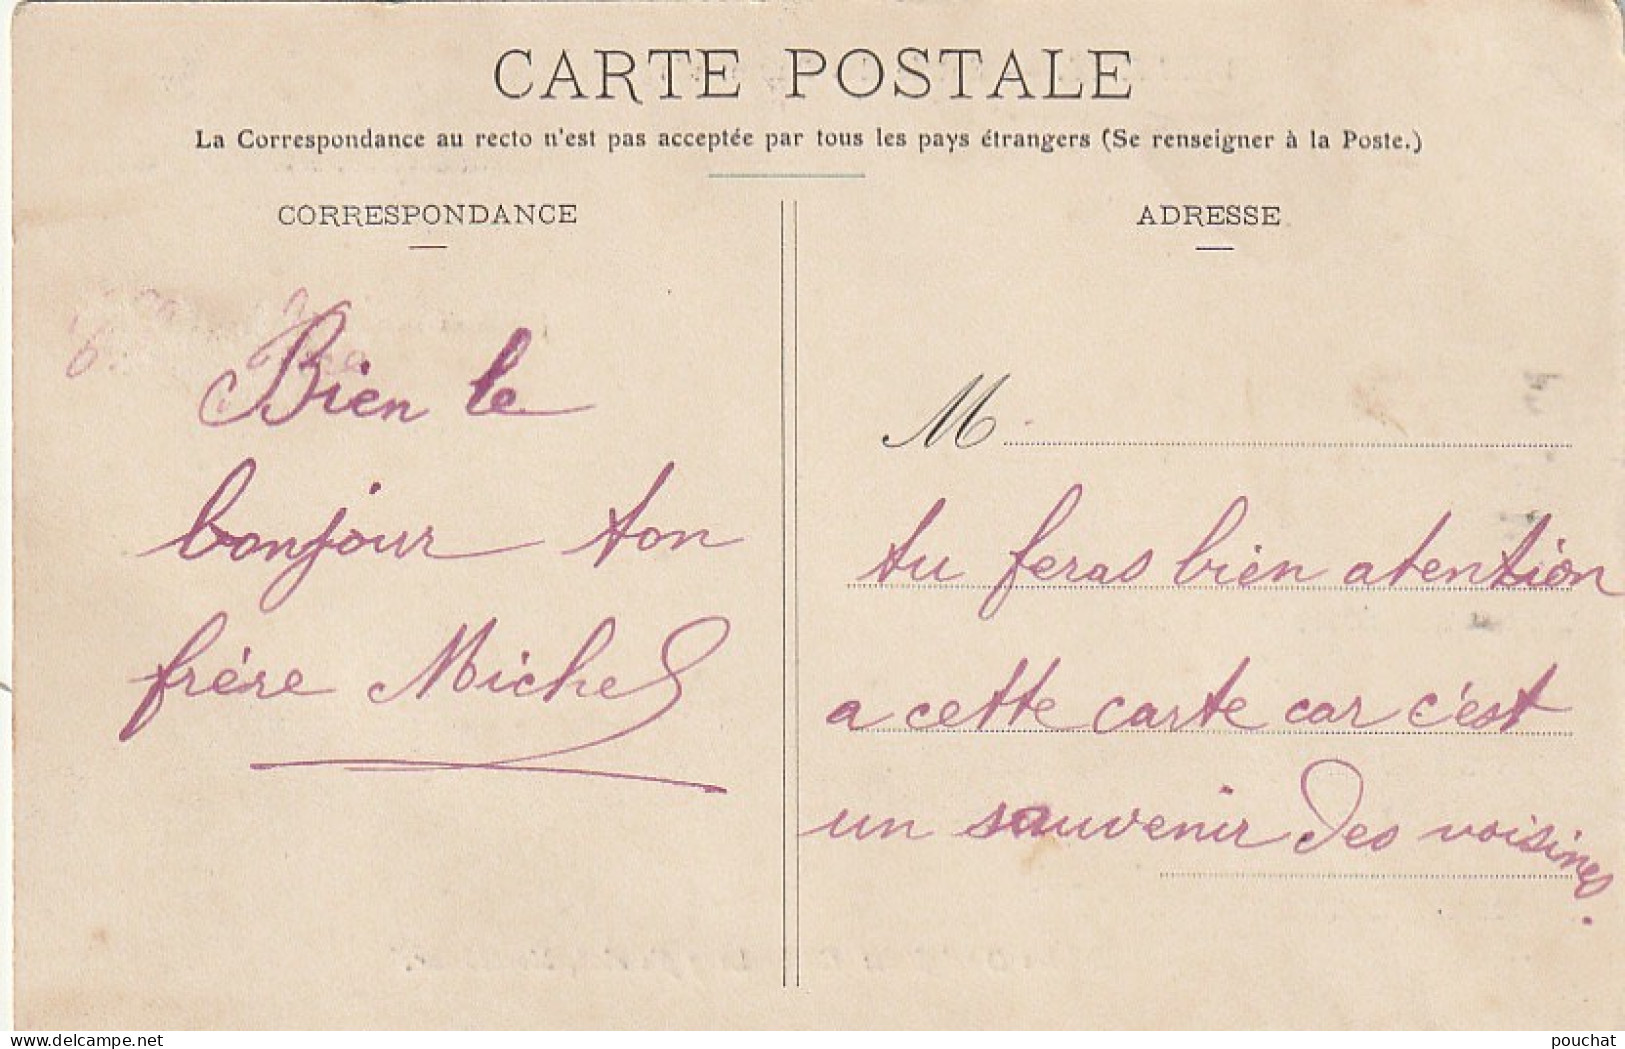 CARTE POSTALE
La Correspondance au recto n'est pas acceptée par tous les pays étrangers (Se renseigner à la Poste.)
CORRESPONDANCE
Bien le
bonjour ton
frére Michel
ADRESSE
M
tu feras bien atention
a cette carte car c'est
un souvenir des voisines.
delcampe.net
pouchat